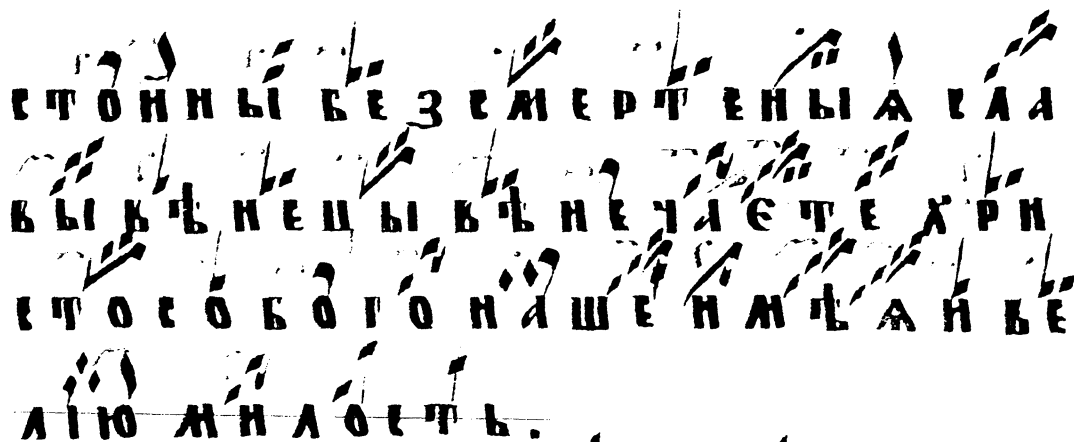 стоини бы без смертеныѧ сла
вы вѣнецы вѣнчаєте хри
стосо бого нашеимѣѧи ве
лїю милость.